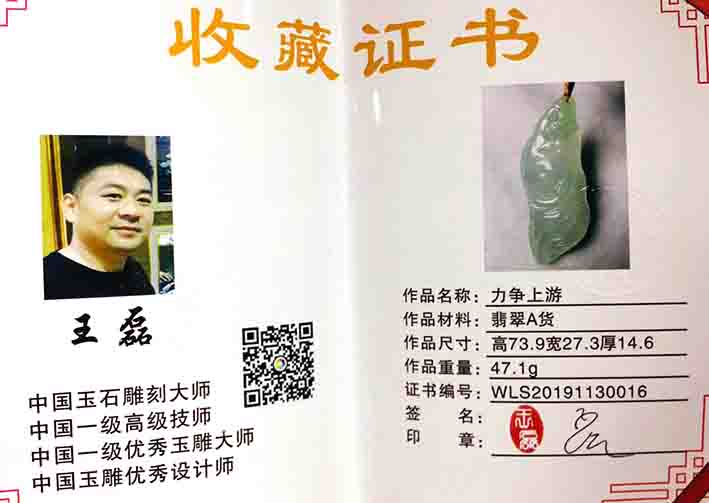 收藏证书
王磊
中国玉石雕刻大师
中国一级高级技师
中国一级优秀玉雕大师
中国玉雕优秀设计师
作品名称：力争上游
作品材料：翡翠A货
作品尺寸：高73.9宽27.3厚14.6
作品重量：47.1g
证书编号：WLS20191130016
签名：
印章：
王磊